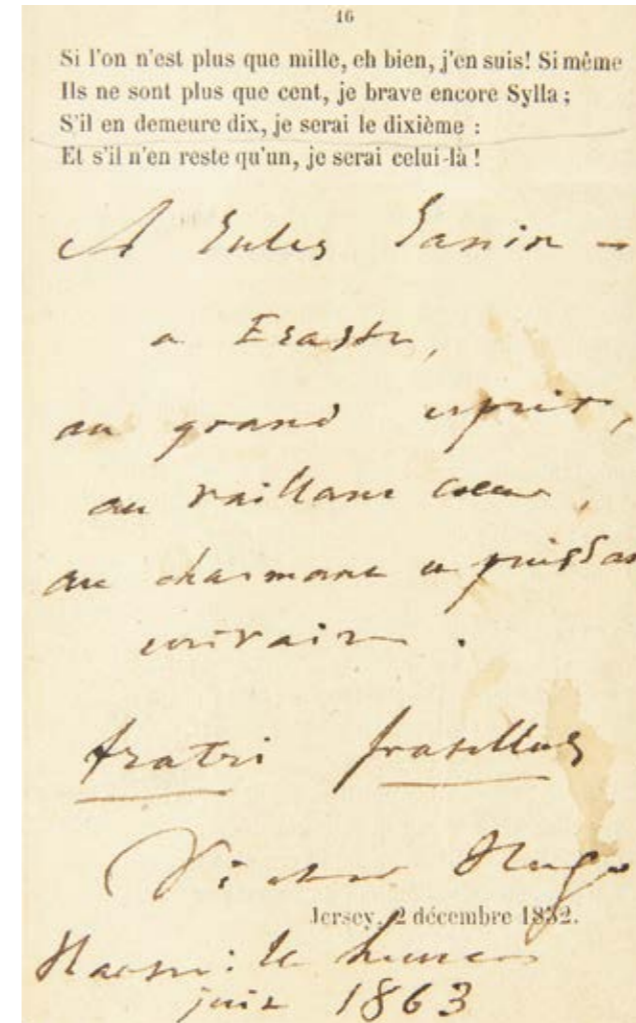 16
Si l'on n'est plus que mille, eh bien, j'en suis! Si même
Ils ne sont plus que cent, je brave encore Sylla ;
S'il en demeure dix, je serai le dixième :
Et s'il n'en reste qu'un, je serai celui-là !
A Jules Janin –
a Eraste,
au grand esprit,
au vaillant cœur,
au charmant et puissant
écrivain.
fratri
Victor Hugo
Jersey, 2 décembre 1852.
juin 1863